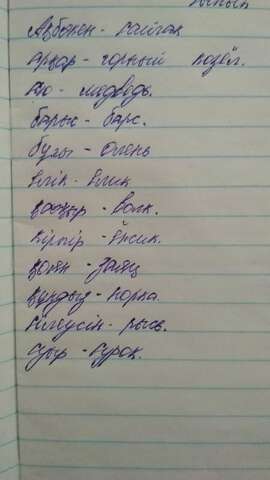 Ақбөкен - сайгак
арқар - горный козёл.
аю - медведь.
барыс - барс.
бұғы - олень
елік - елик
қасқыр - волк.
кірпір - ёжик.
қоян - заяц
құндыз - норка
сілеусін - рысь.
суыр - сурок.